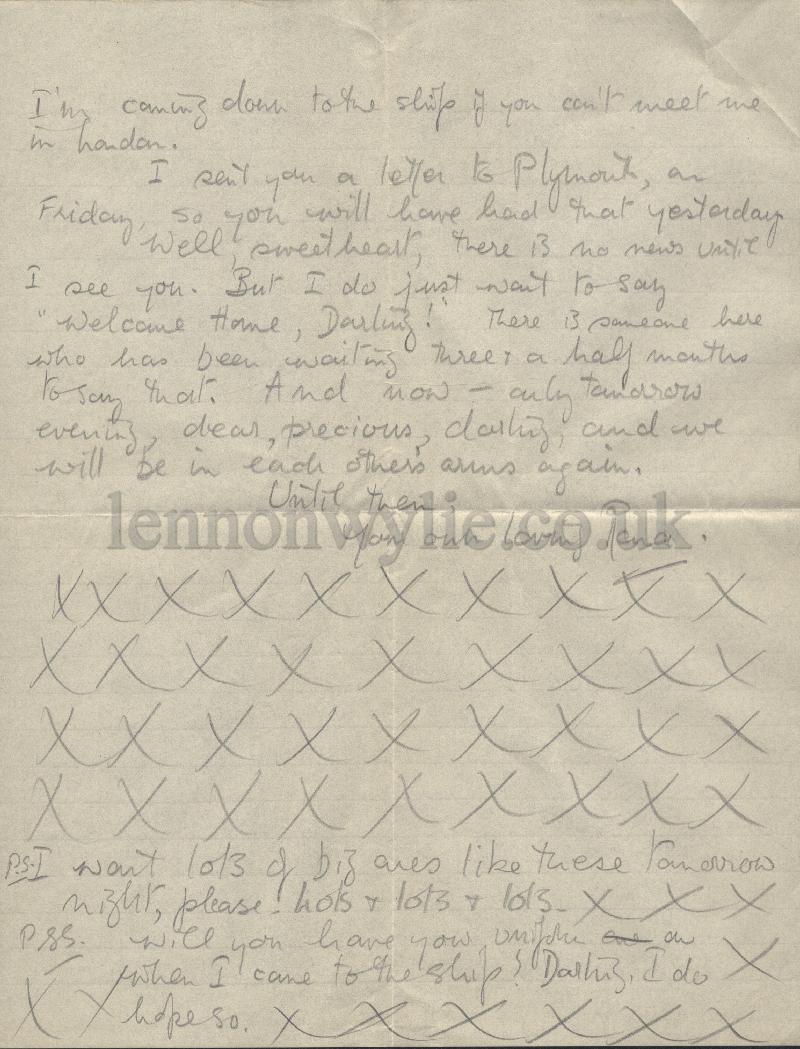 I'm coming down to the ship if you can't meet me
in London.
I sent you a letter to Plymouth, on
Friday, so you will have had that yesterday
Well, sweetheart, there is no news until
I see you. But I do just want to say
"Welcome Home, Darling!" There is someone here
who has been waiting three & a half months
to say that. And now – only tomorrow
evening, dear, precious, darling, and we
will be in each other's arms again.
Until then,
Your own loving Rena.
lennonwylie.co.uk
X X X X X X X X X X
X X X X X X X X X
X X X X X X X X X
X X X X X X X X X
P.S. I want lots of big ones like these tomorrow
night, please! Lots & lots & lots. X X X
P.SS. Will you have your uniform on X
when I come to the ship? Darling, I do
X X hope so. X X X X X X